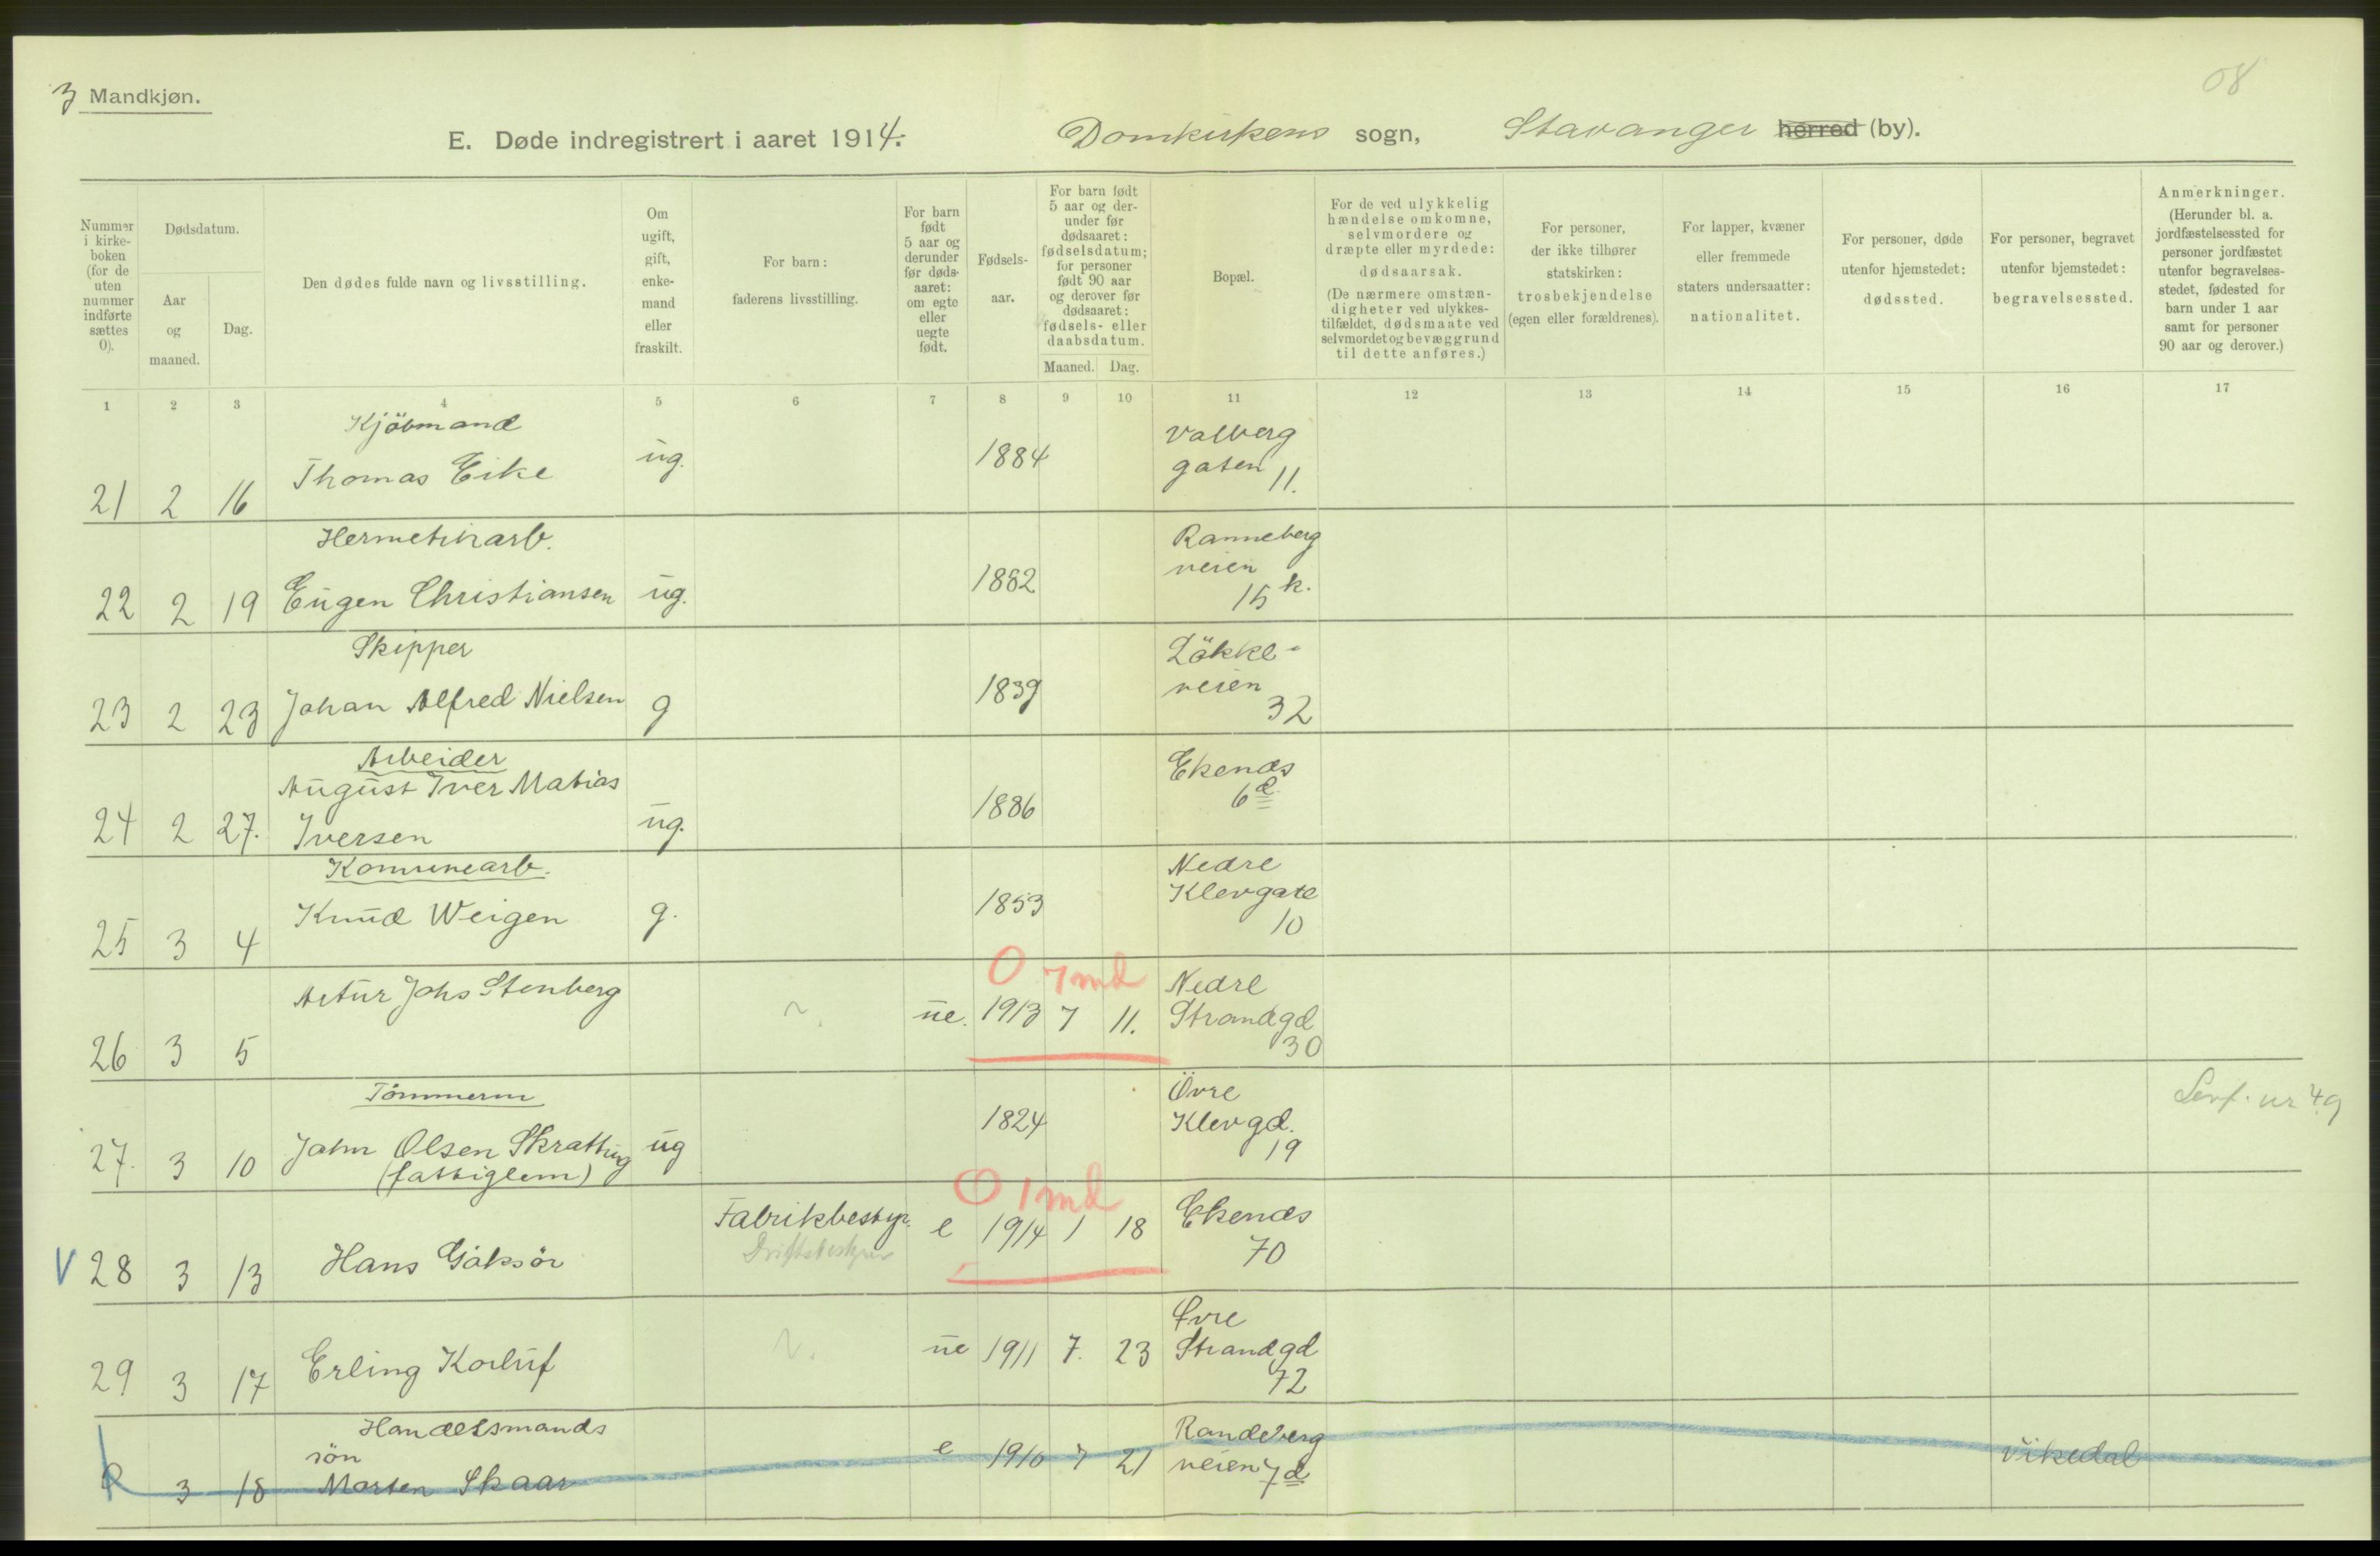 3 Mandkjøn.
08
E. Døde indregistrert i aaret 1914. Domkirkens sogn, Stavanger herred (by).
Nummer i kirke-boken (for de uten nummer indførte sættes 0).
Dødsdatum.
Aar og maaned.
Dag.
Den dødes fulde navn og livsstilling.
Om ugift, gift, enke-mand eller fraskilt.
For barn: faderens livsstilling.
For barn født 5 aar og derunder før døds-aaret: om egte eller uegte født.
Fødsels-aar.
For barn født 5 aar og der-under før dødsaaret: fødselsdatum; for personer født 90 aar og derover før dødsaaret: fødsels- eller daabsdatum.
Maaned. Dag.
Bopæl.
For de ved ulykkelig hændelse omkomne, selvmordere og dræpte eller myrdede: dødsaarsak. (De nærmere omstæn-digheter ved ulykkes-tilfældet, dødsmaate ved selvmordet og bevæggrund til dette anføres.)
For personer, der ikke tilhører statskirken: trosbekjendelse (egen eller forældrenes).
For lapper, kvæner eller fremmede staters undersaatter: nationalitet.
For personer, døde utenfor hjemstedet: dødssted.
For personer, begravet utenfor hjemstedet: begravelsessted.
Anmerkninger. (Herunder bl. a. jordfæstelsessted for personer jordfæstet utenfor begravelses-stedet, fødested for barn under 1 aar samt for personer 90 aar og derover.)
1 2 3 4 5 6 7 8 9 10 11 12 13 14 15 16 17
Kjöbmand Valberg
21 2 16 Thomas Eike ug. 1884 gaten 11.
Hermetikarb. Ranneberg
veien
22 2 19 Eugen Christiansen ug. 1882 15 k.
Skipper Lökke-
veien
23 2 23 Johan Alfred Nielsen g 1839 32
Arbeider Ekenæs
August Iver Matias 6 d
24 2 27. Iversen ug. 1886
Komunearb. Nedre
Klevgate
25 3 4 Knud Weigen g. 1853 10
0 7 md
Artur Johs Stenberg ue. 1913 7 11. Nedre
Strandgd
26 3 5 30
Tömmerm Övre
1824 Klevgd.
27. 3 10 John Olsen Skratting ug 19
(fattiglem)
0 1 md
Fabrikbestyr. e 1914 1 18 Ekenæs
Driftsbestyrer
V 28 3 13 Hans Gjöksör 70
Øvre
ue 1911 7. 23 Strandgd
29 3 17 Erling Korluf 72
Handelsmands Randeberg
sön e 1910 7 21 veien 7 d Vikedal
3 18 Morten Skaar